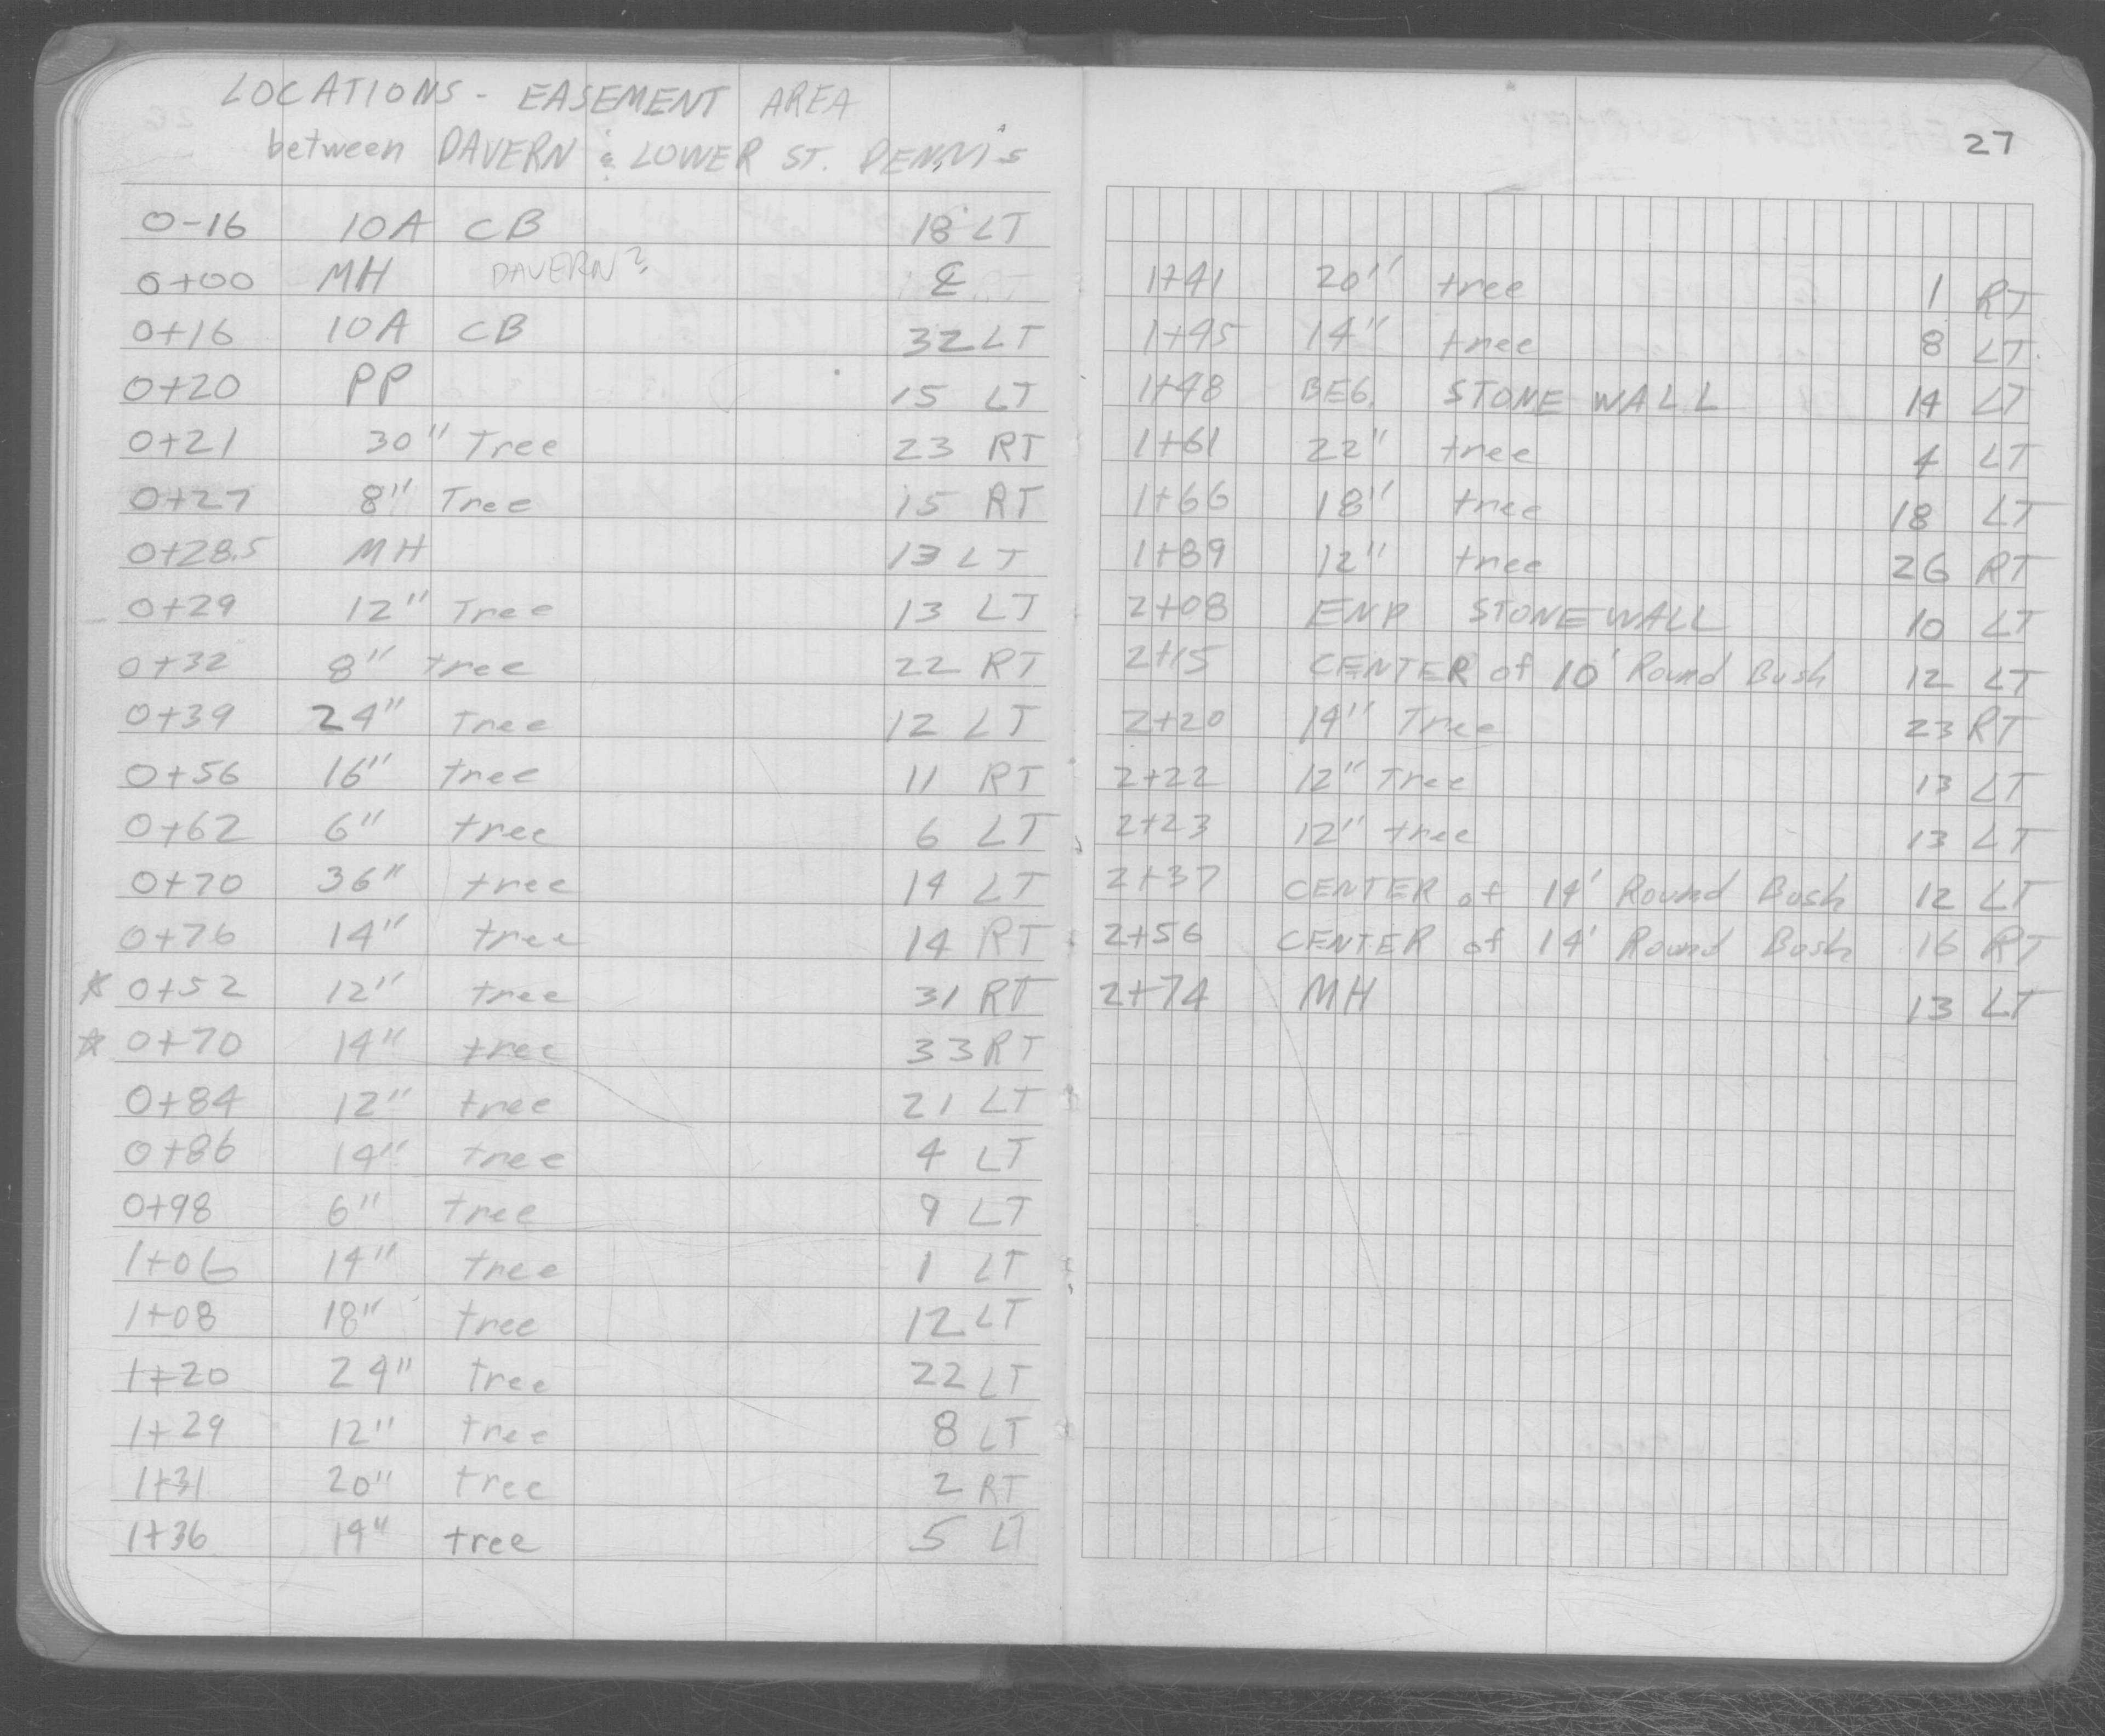 LOCATIONS - EASEMENT AREA
between DAVERN & LOWER ST. DENNIS
0-16 10A CB 18 LT
0+00 MH DAVERN? ℄
0+16 10A CB 32 LT
0+20 PP 15 LT
0+21 30" Tree 23 RT
0+27 8" Tree 15 RT
0+28.5 MH 13 LT
0+29 12" Tree 13 LT
0+32 8" tree 22 RT
0+39 24" tree 12 LT
0+56 16" tree 11 RT
0+62 6" tree 6 LT
0+70 36" tree 14 LT
0+76 14" tree 14 RT
* 0+52 12" tree 31 RT
* 0+70 14" tree 33 RT
0+84 12" tree 21 LT
0+86 14" tree 4 LT
0+98 6" tree 9 LT
1+06 14" tree 1 LT
1+08 18" tree 12 LT
1+20 24" tree 22 LT
1+29 12" tree 8 LT
1+31 20" tree 2 RT
1+36 14" tree 5 LT
27
1+41 20" tree 1 RT
1+45 14" tree 8 LT
1+48 BEG. STONE WALL 14 LT
1+61 22" tree 4 LT
1+66 18" tree 18 LT
1+89 12" tree 26 RT
2+08 END STONE WALL 10 LT
2+15 CENTER of 10' Round Bush 12 LT
2+20 14" Tree 23 RT
2+22 12" Tree 13 LT
2+23 12" tree 13 LT
2+37 CENTER of 14' Round Bush 12 LT
2+56 CENTER of 14' Round Bush 16 RT
2+74 MH 13 LT